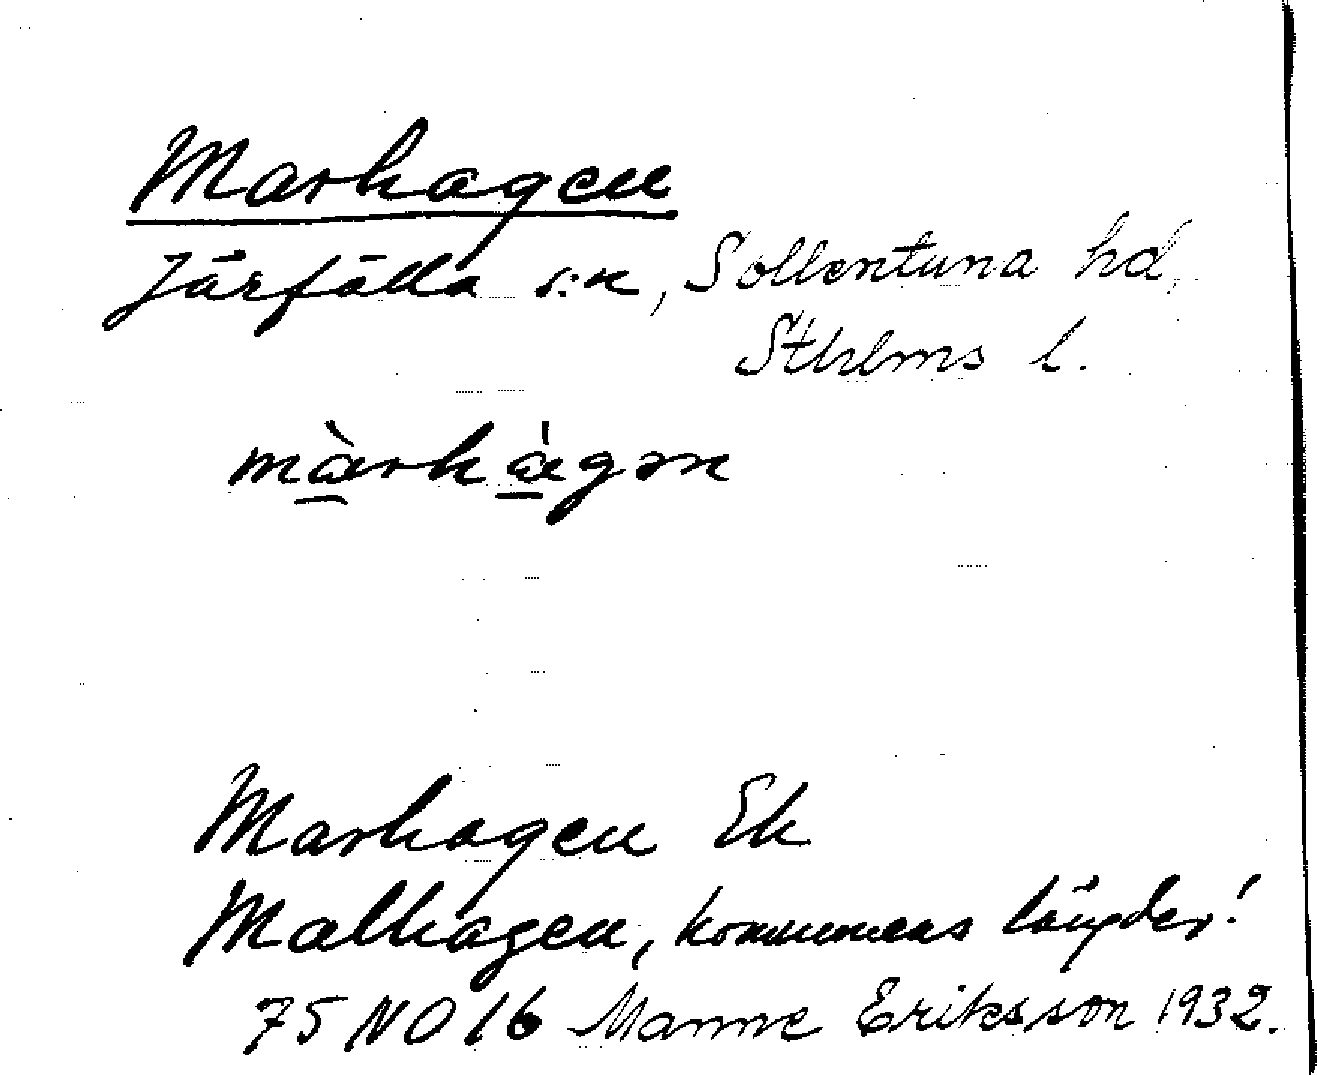 Marhagen
Järfälla s:n, Sollentuna hd,
Sthlms l.
màrhágən
Marhagen Ek
Malhagen, kommunens längder!
75 NO 16 Manne Eriksson 1932.